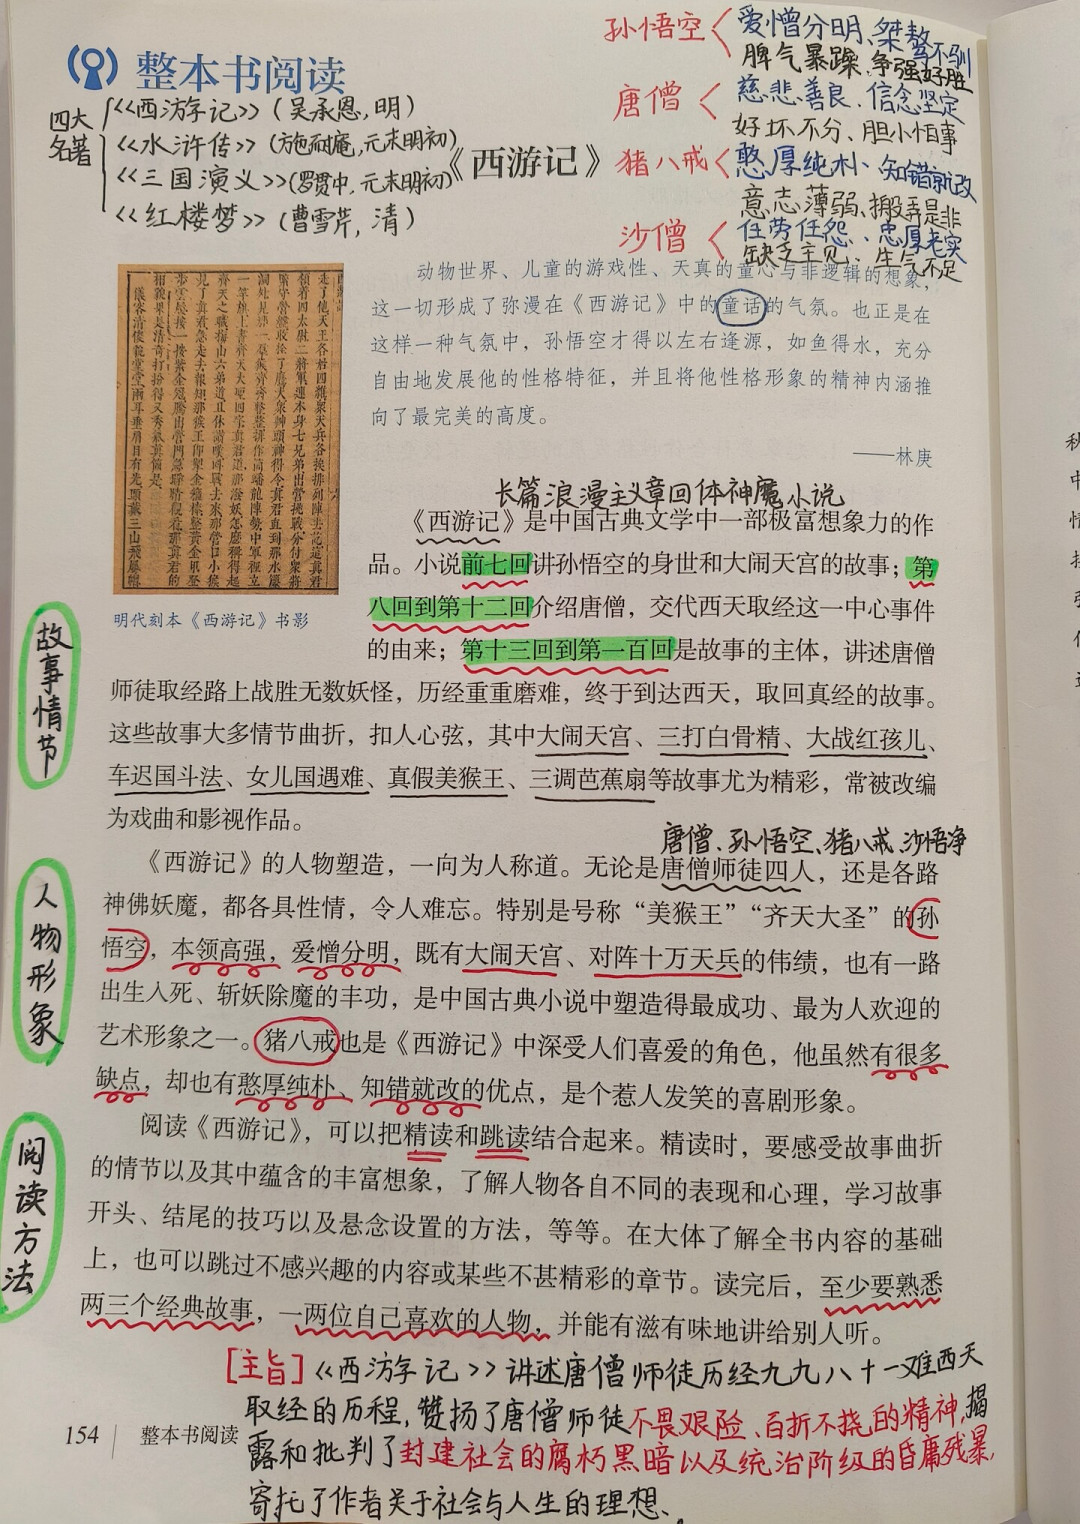 整本书阅读
四大名著
《西游记》（吴承恩，明）
《水浒传》（施耐庵，元末明初）
《三国演义》（罗贯中，元末明初）
《红楼梦》（曹雪芹，清）
孙悟空
爱憎分明、桀骜不驯
脾气暴躁、争强好胜
唐僧
慈悲善良、信念坚定
好坏不分、胆小怕事
猪八戒
憨厚纯朴、知错就改
意志薄弱、搬弄是非
沙僧
任劳任怨、忠厚老实
缺乏主见、生气不足
《西游记》
动物世界、儿童的游戏性、天真的童心与非逻辑的想象，
这一切形成了弥漫在《西游记》中的童话的气氛。也正是在
这样一种气氛中，孙悟空才得以左右逢源，如鱼得水，充分
自由地发展他的性格特征，并且将他性格形象的精神内涵推
向了最完美的高度。
——林庚
明代刻本《西游记》书影
长篇浪漫主义章回体神魔小说
《西游记》是中国古典文学中一部极富想象力的作
品。小说前七回讲孙悟空的身世和大闹天宫的故事；第
八回到第十二回介绍唐僧，交代西天取经这一中心事件
的由来；第十三回到第一百回是故事的主体，讲述唐僧
师徒取经路上战胜无数妖怪，历经重重磨难，终于到达西天，取回真经的故事。
这些故事大多情节曲折，扣人心弦，其中大闹天宫、三打白骨精、大战红孩儿、
车迟国斗法、女儿国遇难、真假美猴王、三调芭蕉扇等故事尤为精彩，常被改编
为戏曲和影视作品。
故事情节
唐僧、孙悟空、猪八戒、沙悟净
《西游记》的人物塑造，一向为人称道。无论是唐僧师徒四人，还是各路
神佛妖魔，都各具性情，令人难忘。特别是号称“美猴王”“齐天大圣”的孙
悟空，本领高强，爱憎分明，既有大闹天宫、对阵十万天兵的伟绩，也有一路
出生入死、斩妖除魔的丰功，是中国古典小说中塑造得最成功、最为人欢迎的
艺术形象之一。猪八戒也是《西游记》中深受人们喜爱的角色，他虽然有很多
缺点，却也有憨厚纯朴、知错就改的优点，是个惹人发笑的喜剧形象。
人物形象
阅读《西游记》，可以把精读和跳读结合起来。精读时，要感受故事曲折
的情节以及其中蕴含的丰富想象，了解人物各自不同的表现和心理，学习故事
开头、结尾的技巧以及悬念设置的方法，等等。在大体了解全书内容的基础
上，也可以跳过不感兴趣的内容或某些不甚精彩的章节。读完后，至少要熟悉
两三个经典故事，一两位自己喜欢的人物，并能有滋有味地讲给别人听。
阅读方法
[主旨]《西游记》讲述唐僧师徒历经九九八十一难西天
取经的历程，赞扬了唐僧师徒不畏艰险、百折不挠的精神，揭
露和批判了封建社会的腐朽黑暗以及统治阶级的昏庸残暴，
寄托了作者关于社会与人生的理想、
154
整本书阅读